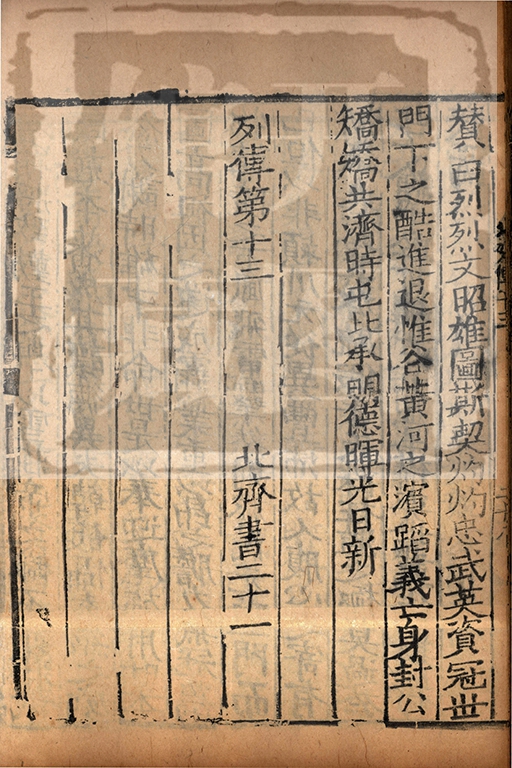 贊曰烈烈文昭雄圖斯契灼灼忠武英資冠世
門下之酷進退惟谷黃河之濱蹈義亡身封公
矯矯共濟時屯比承明德暉光日新
列傳第十三 北齊書二十一